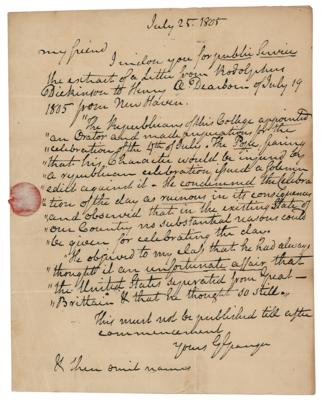 July 25. 1805
my friend
I inclose you for public Service
the extract of a Letter from Rodolphus
Dickinson to Henry A Dearborn of July 19
1805 from New Haven.
"The Republican of this College appointed
"an Orator and made preparation for the
"celebration of the 4th of July. The Pope, fearing
"that his Character would be injured by
"a republican celebration issued a solemn
"edict against it. He condemned the celebra
"tion of the day as ruinous in its consequences
"and observed that in the existing State of
"our Country no substantial reasons could
"be given for celebrating the day.
"He observed to my class that he had always
"thought it an unfortunate affair, that
"the United States seperated from Great
"Brittain & that he thought so still."
This must not be published till after
commencement
Yours G Granger
& then omit names